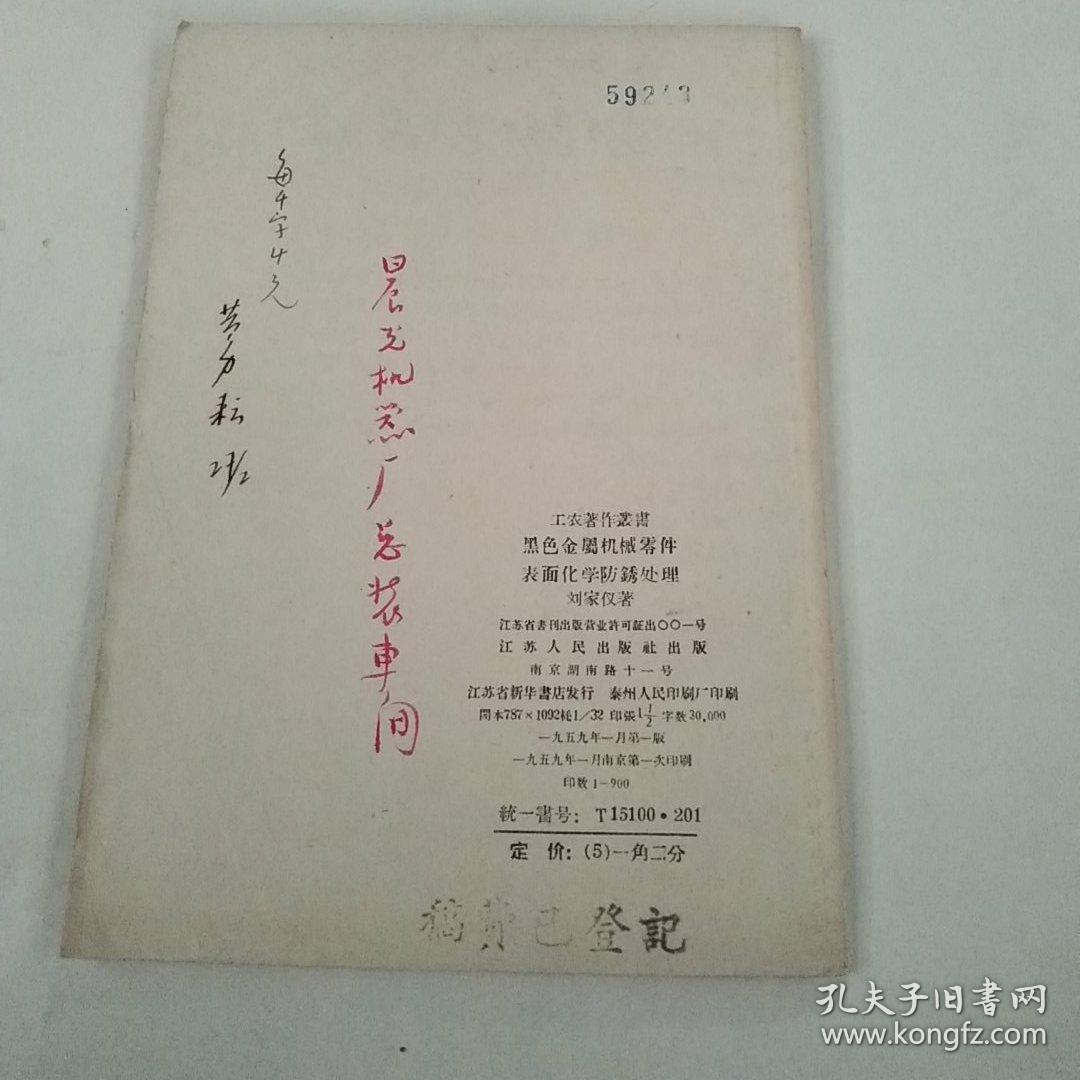 每千字4元
晨光机器厂总装車间
工农著作叢書
黑色金屬机械零件
表面化学防銹处理
刘家仪著
江苏省書刊出版营业許可証出〇〇一号
江苏人民出版社出版
南京湖南路十一号
江苏省新华書店发行 泰州人民印刷厂印刷
開本787×1092耗1/32 印張1 1/2 字数30,000
一九五九年一月第一版
一九五九年一月南京第一次印刷
印数1-900
統一書号: T15100·201
定价: (5)一角二分
稿費已登記
孔夫子旧書网
www.kongfz.com